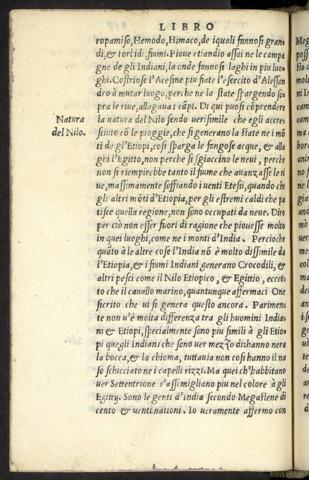 LIBRO
ropamiso, Hemodo, Himaco, de i quali fannosi gran
di, & torbidi fiumi. Pioue etiandio assai ne le campa
gne de gli Indiani, la onde fannosi laghi in piu luo
ghi. Costrinse l'Acesine piu fiate l'esercito d'Alessan
dro à mutar luogo, perche ne la state spargendo so=
pra le riue, allagaua i cāpi. Di qui puosi cōprendere
Natura
del Nilo.
la natura del Nilo sendo uerisimile che egli accre=
sciuto cō le pioggie, che si generano la state ne i mō
ti de gl'Etiopi, cosi sparga le fangose acque, & alla
ghi l'Egitto, non perche si sgiaccino le neui, perche
non si riempirebbe tanto il fiume che auanzasse le ri
ue, massimamente soffiando i uenti Etesij, quando che
gli altri mōti d'Etiopia, per gli estremi caldi che pa
tisce quella regione, non sono occupati da neue. Diro
per ciò non esser fuori di ragione che piouesse molto
in quei luoghi, come ne i monti d'India. Percioche
quāto à le altre cose l'India nō è molto dissimile da
l'Etiopia, & i fiumi Indiani generano Crocodili, &
altri pesci come il Nilo Etiopico, & Egittio, eccet=
to che il cauallo marino, quantunque affermaci One
sicrito che ui si genera questo ancora. Parimen=
te non u'è molta differenza tra gli huomini India=
ni & Etiopi, specialmente sono piu simili à gli Etio=
pi quegli Indiani, che sono uer mezzo di: hanno nera
la bocca, & la chioma, tuttauia non cosi hanno il na
so schicciato ne i capelli rizzi. Ma quei ch'habbitano
uer Settentrione s'assimigliano piu nel colore à gli
Egitty. Sono le genti d'India secondo Megastene di
cento & uenti nationi. Io ueramente affermo con